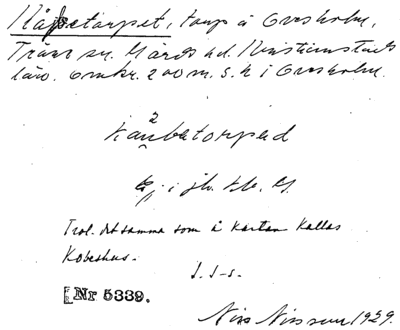 Kåbetorpet, torp å Ovesholm,
Träne sn. Gärds hd. Kristianstads
län. omkr. 200 m. s. h i Ovesholm.
kåbetorped
Ej i jb.
Trol. det samma som å kartan kallas
Kobeshus.
J. J-s.
[Nr 5339.
Nils Nilsson 1929.